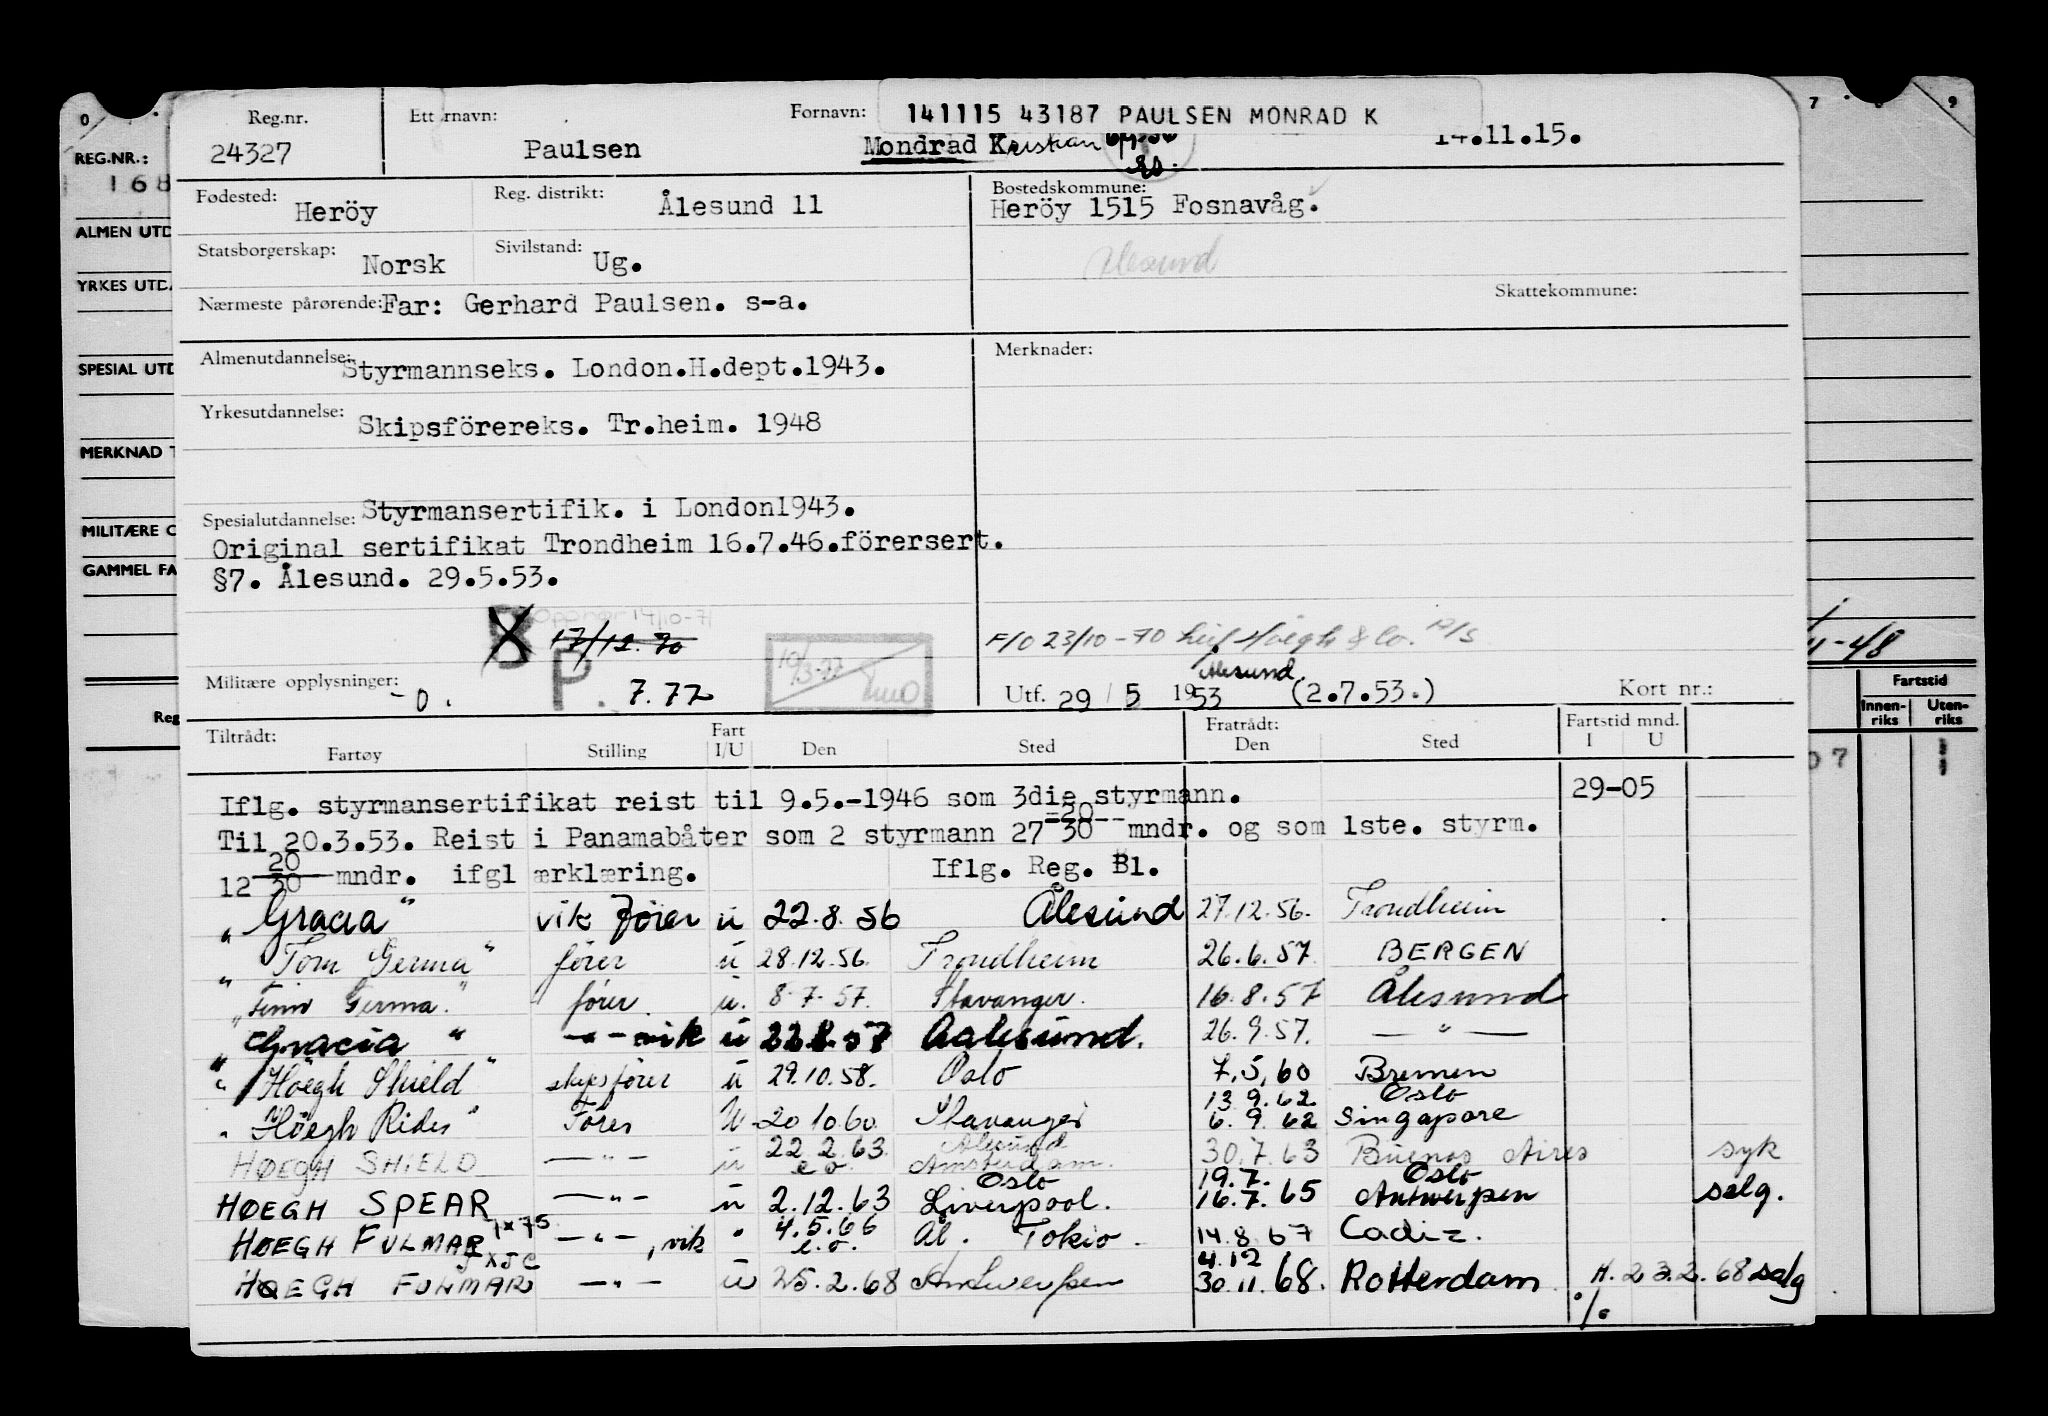 0 7 9
REG.NR.:
168
ALMEN UTD
YRKES UTDA
SPESIAL UTD
MERKNAD T
MILITÆRE O
GAMMEL FA
Reg
11-48
Fartstid
Innen-riks Uten-riks
07
Reg.nr. Etternavn: Fornavn: 141115 43187 PAULSEN MONRAD K
24327 Paulsen Mondrad Kristian 14.11.15.
Fødested: Heröy Reg. distrikt: Ålesund 11 Bostedskommune: Heröy 1515 Fosnavåg.
Statsborgerskap: Norsk Sivilstand: Ug. Ålesund
Nærmeste pårørende: Far: Gerhard Paulsen. s-a. Skattekommune:
Almenutdannelse: Styrmannseks. London.H.dept.1943. Merknader:
Yrkesutdannelse: Skipsförereks. Tr.heim. 1948
Spesialutdannelse: Styrmansertifik. i London1943.
Original sertifikat Trondheim 16.7.46.förersert.
§7. Ålesund. 29.5.53.
14/10-71
17/12.70 F/O 23/10-70 Leif Höegh & Co. A/S
P. 7.77 10/3-77
Militære opplysninger: -0. Utf. 29/5 1953 Ålesund (2.7.53.) Kort nr.:
Tiltrådt: Fart Fratrådt: Fartstid mnd.
Fartøy Stilling I/U Den Sted Den Sted I U
Iflg. styrmansertifikat reist til 9.5.-1946 som 3die styrmann. 29-05
Til 20.3.53. Reist i Panamabåter som 2 styrmann 27 20/30 mndr. og som 1ste. styrm.
12 20/30 mndr. ifgl ærklæring. Iflg. Reg. Bl.
"Gracia" vik fører u 22.8.56 Ålesund 27.12.56. Trondheim
"Tom Germa" fører u 28.12.56. Trondheim 26.6.57. BERGEN
"Finn Germa." fører. u. 8.7.57. Stavanger. 16.8.57 Ålesund
"Gracia" -"- vik u 22.8.57 Aalesund. 26.9.57. — " —
"Höegh Shield" skipsfører u 29.10.58. Oslo 7.5.60 Bremen
"Höegh Rider" Fører U 20 10.60. Stavanger 13.9.62 Oslo 6.9.62 Singapore
HØEGH SHIELD —"— u 22.2.63. e.o. Ålesund Amsterdam. 30.7.63 Buenos Aires syk
HØEGH SPEAR —"— u 2.12.63 Oslo Liverpool. 19.7. Oslo 16.7.65 Antwerpen salg.
HØEGH FULMAR —"—, vik " 4.5.66 e.o. Ål. Tokio. 14.8.67 Cadiz.
HØEGH FULMAR —"— U 25.2.68 Antwerpen 4.12 30.11.68. Rotterdam H. 23.2.68 salg